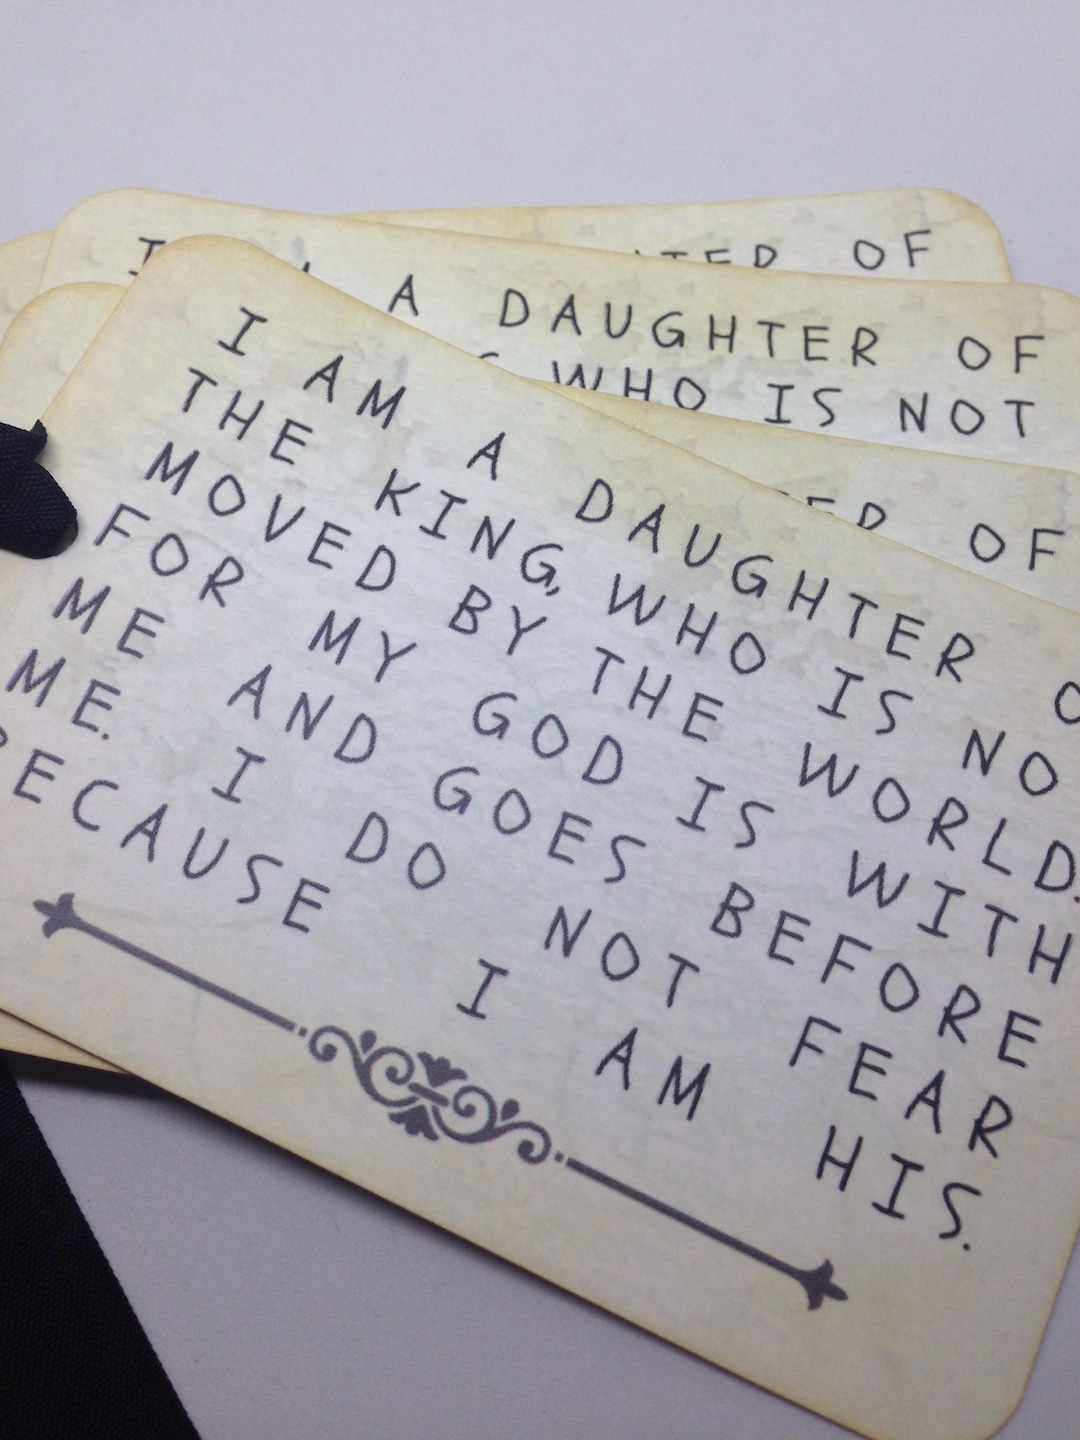 OF
A DAUGHTER OF
WHO IS NOT
OF
I AM A DAUGHTER O
THE KING, WHO IS NO
MOVED BY THE WORLD.
FOR MY GOD IS WITH
ME AND GOES BEFORE
ME. I DO NOT FEAR
BECAUSE I AM HIS.